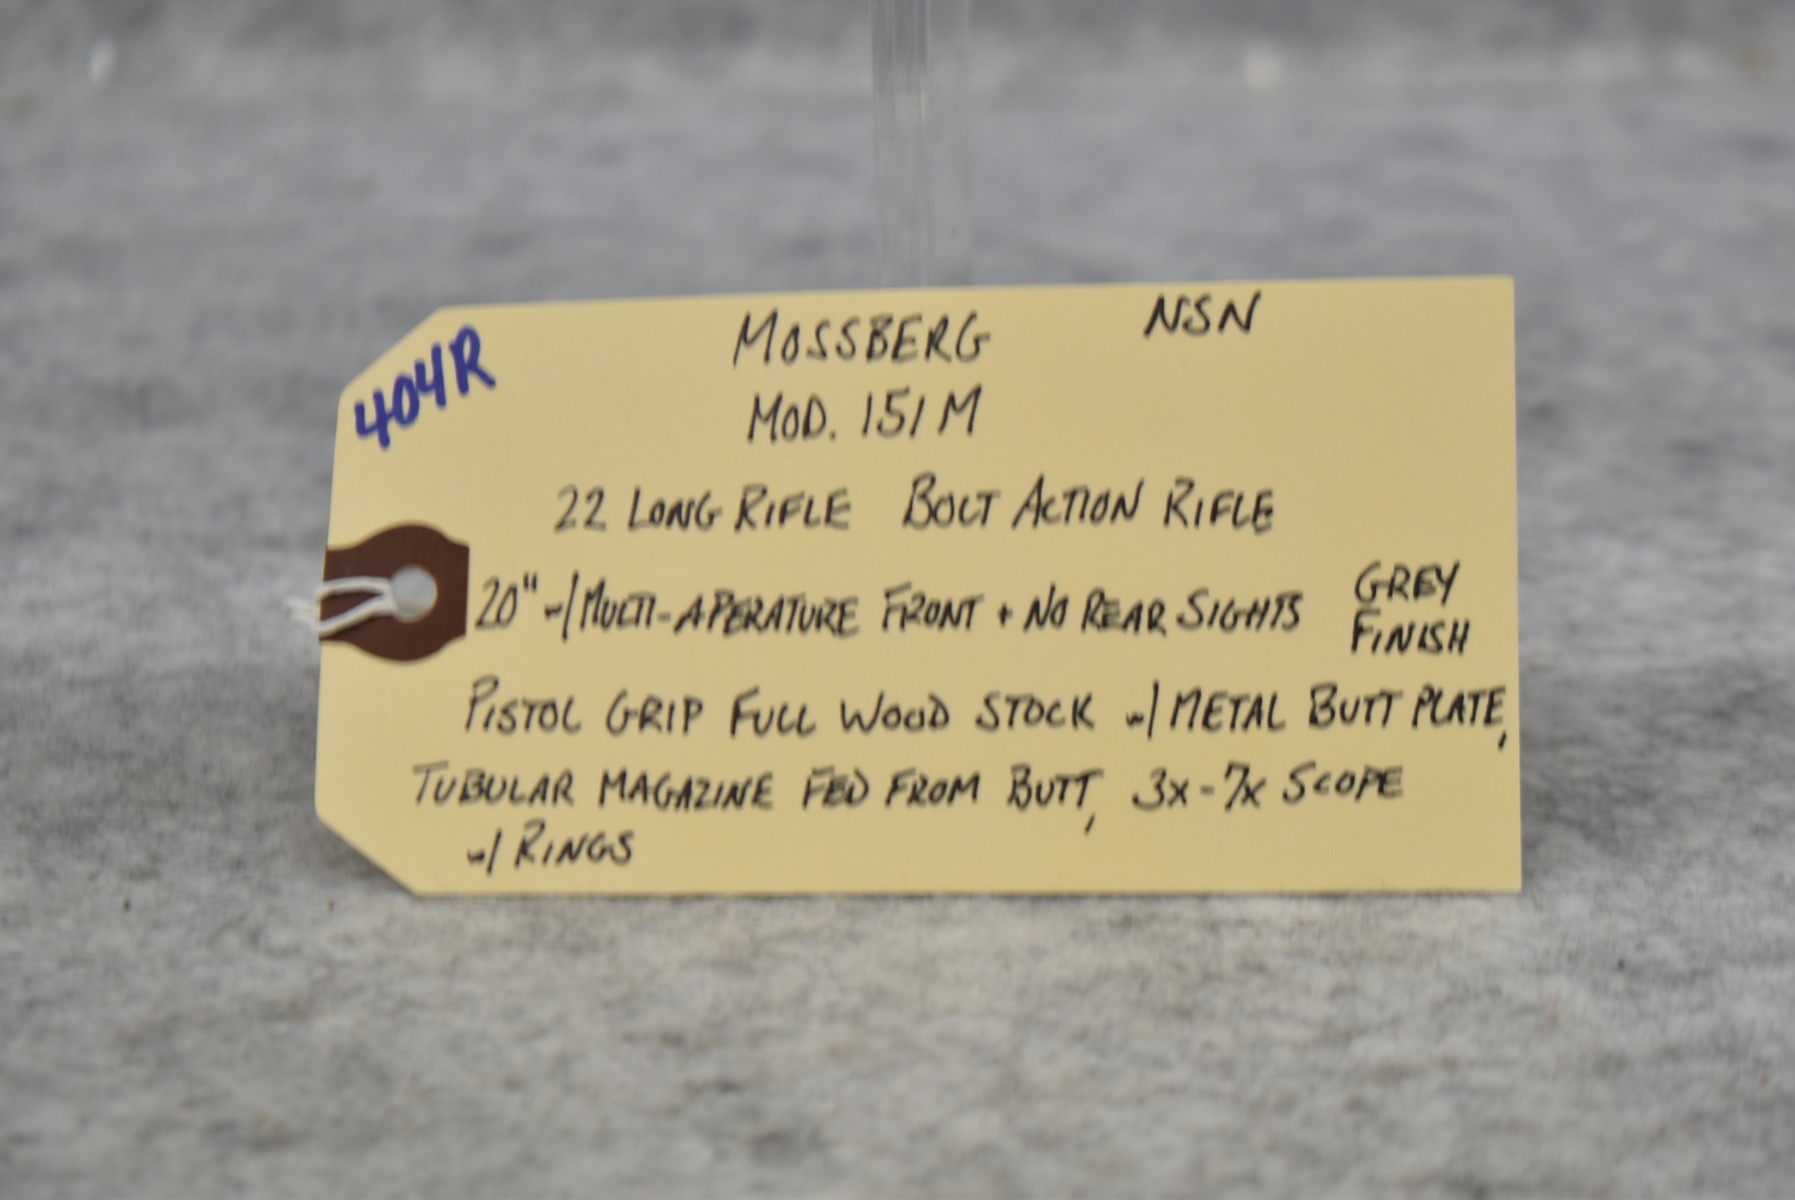 404R
MOSSBERG NSN
MOD. 151M
22 LONG RIFLE BOLT ACTION RIFLE
20" w/ MULTI-APERATURE FRONT + NO REAR SIGHTS GREY FINISH
PISTOL GRIP FULL WOOD STOCK w/ METAL BUTT PLATE,
TUBULAR MAGAZINE FED FROM BUTT, 3x-7x SCOPE
w/ RINGS